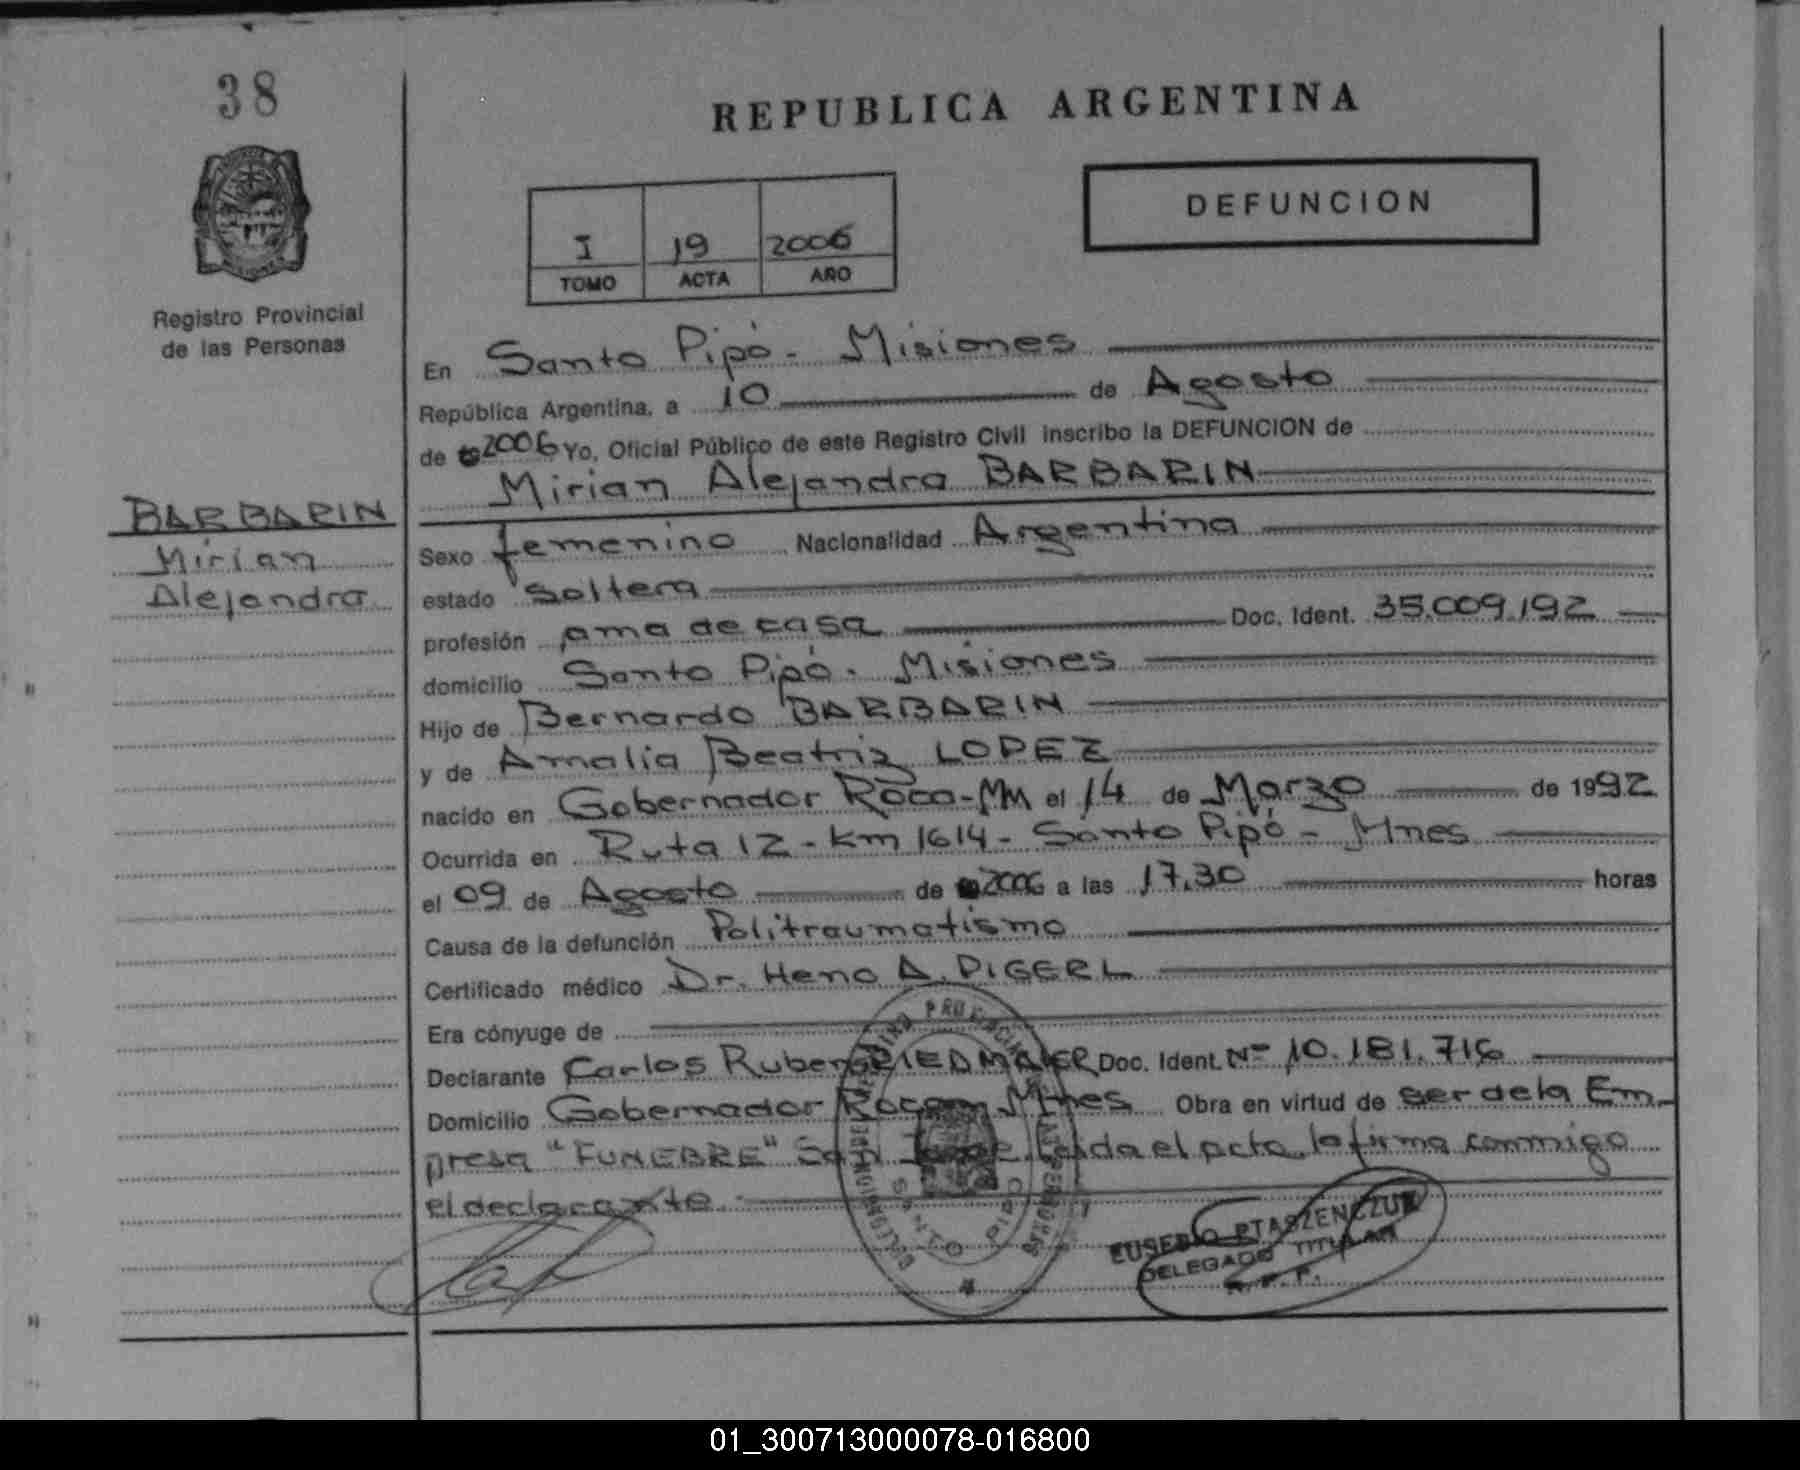 38
REPUBLICA ARGENTINA
DEFUNCION
I 19 2006
TOMO ACTA AÑO
Registro Provincial
de las Personas
BARBARIN
Mirian
Alejandra
En Santo Pipó - Misiones
República Argentina, a 10 de Agosto
de 2006 Yo, Oficial Público de este Registro Civil inscribo la DEFUNCION de
Mirian Alejandra BARBARIN
Sexo femenino Nacionalidad Argentina
estado soltera
profesión ama de casa Doc. Ident. 35.009.192
domicilio Santo Pipó - Misiones
Hijo de Bernardo BARBARIN
y de Amalia Beatriz LOPEZ
nacido en Gobernador Roca - el 14 de Marzo de 1992
Ocurrida en Ruta 12 - Km 1614 - Santo Pipó - Mnes
el 09 de Agosto de 2006 a las 17,30 horas
Causa de la defunción Politraumatismo
Certificado médico Dr. Heno A. DIGERL
Era cónyuge de
Declarante Carlos Ruben RIEDMAIER Doc. Ident. Nº 10.181.716
Domicilio Gobernador Roca Mnes Obra en virtud de ser de la Em-
presa "FUNEBRE" San Leída el acta, la firma conmigo
el declarante.
EUSEBIO PTASZENCZUK
DELEGADO TITULAR
R. P. P.
01_300713000078-016800